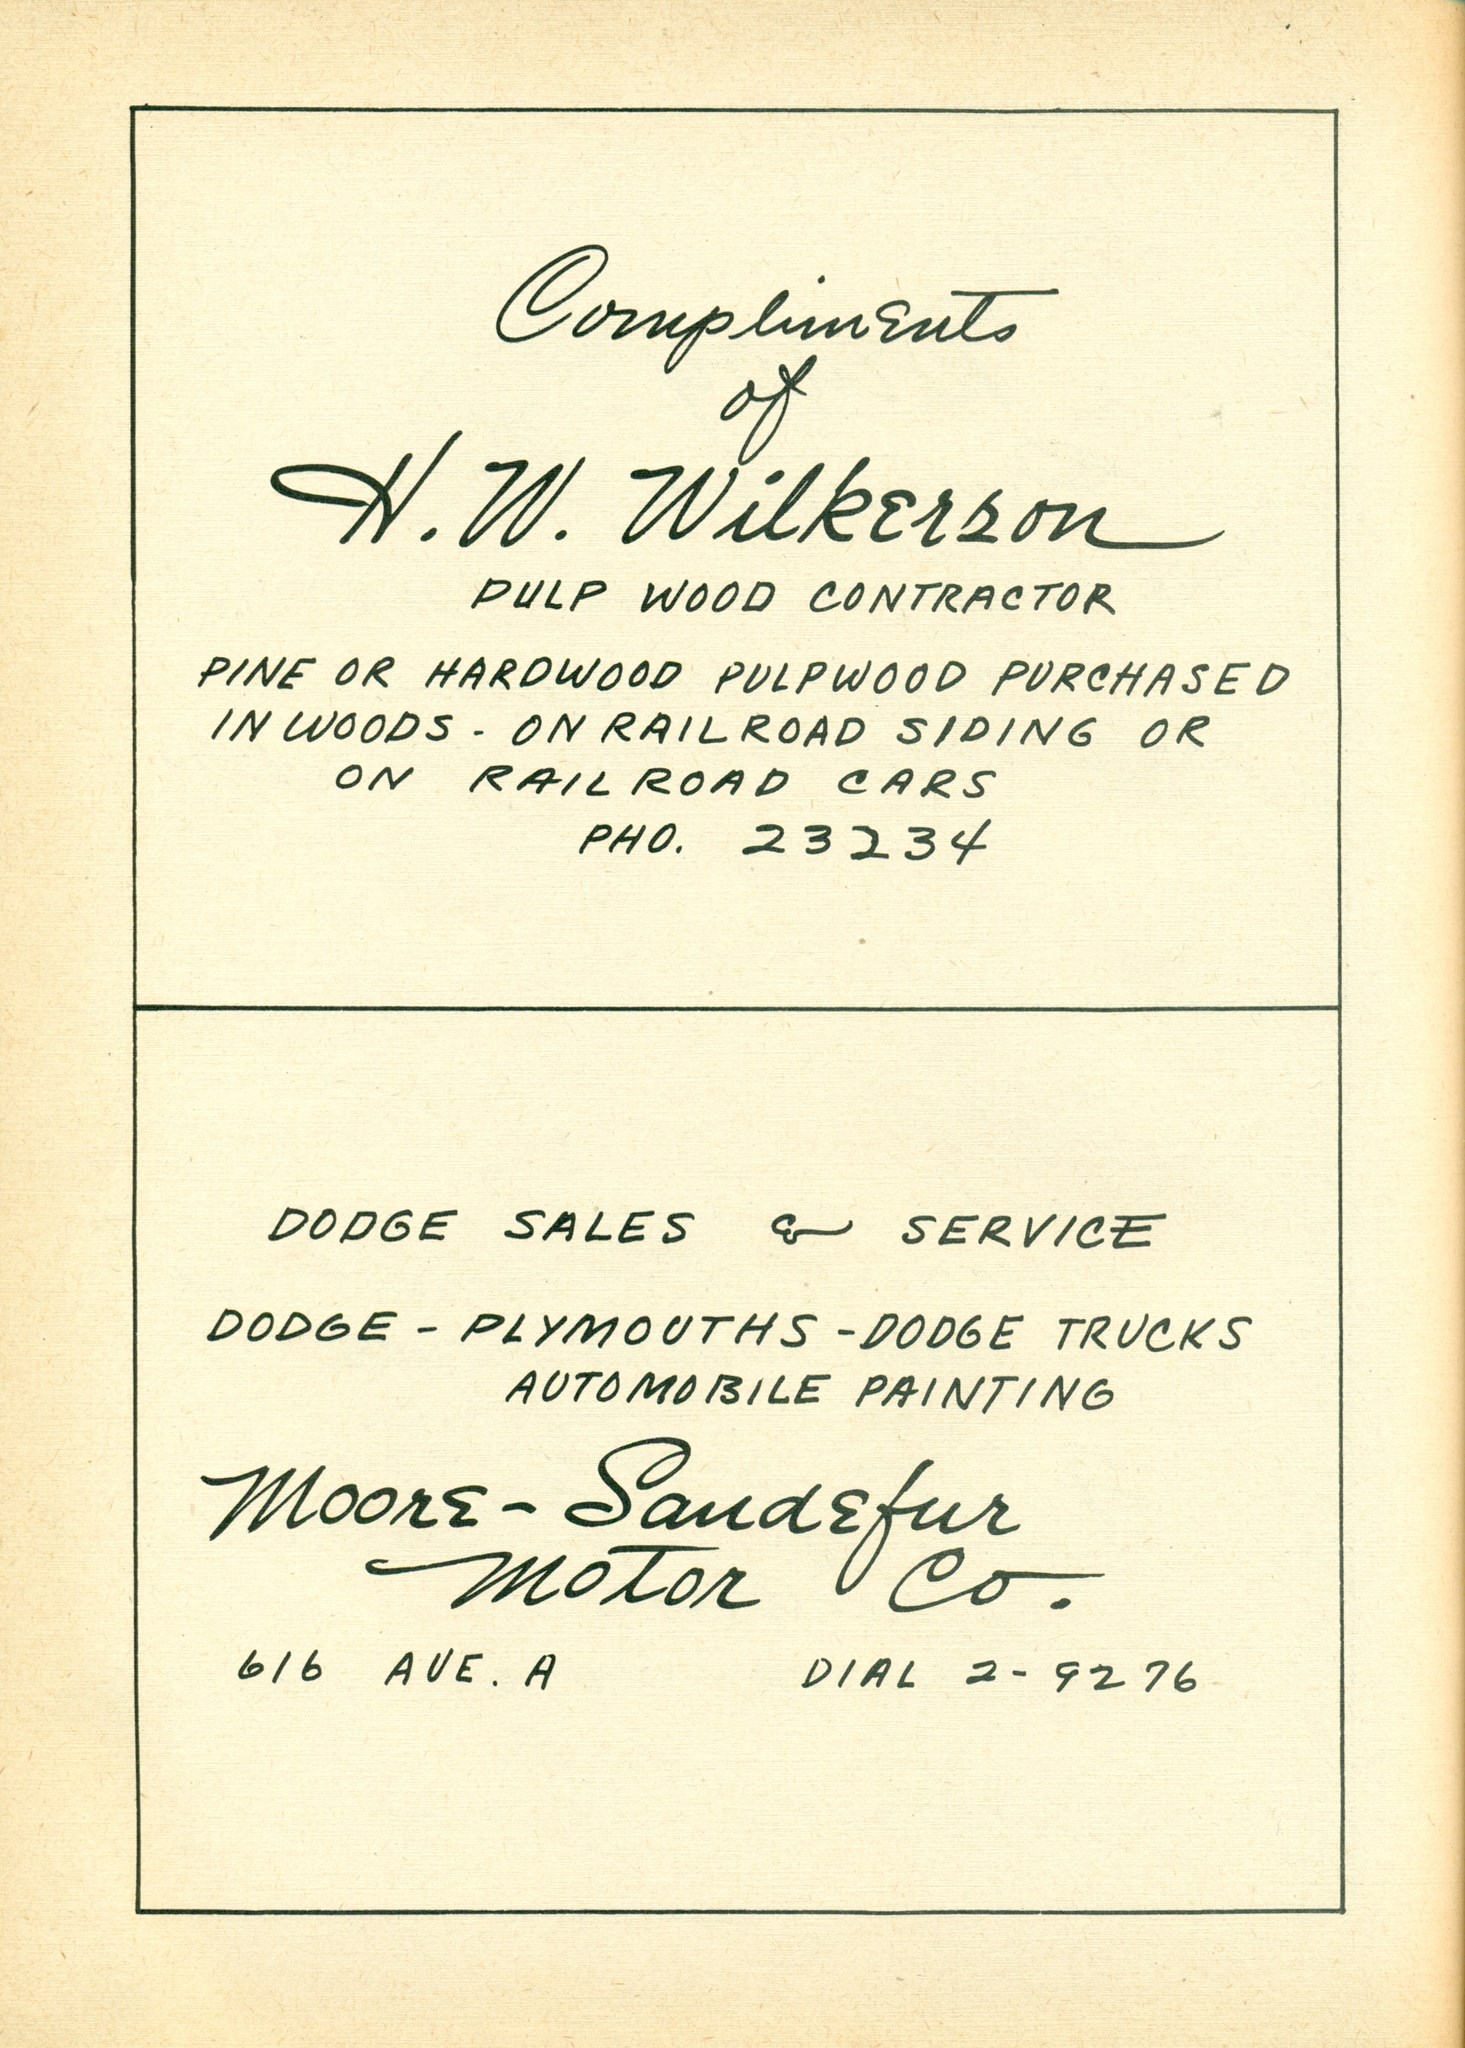 Compliments
of
H. W. Wilkerson
PULP WOOD CONTRACTOR
PINE OR HARDWOOD PULPWOOD PURCHASED
IN WOODS - ON RAILROAD SIDING OR
ON RAILROAD CARS
PHO. 23234
DODGE SALES & SERVICE
DODGE - PLYMOUTHS - DODGE TRUCKS
AUTOMOBILE PAINTING
Moore - Sandefur
Motor Co.
616 AVE. A DIAL 2-9276